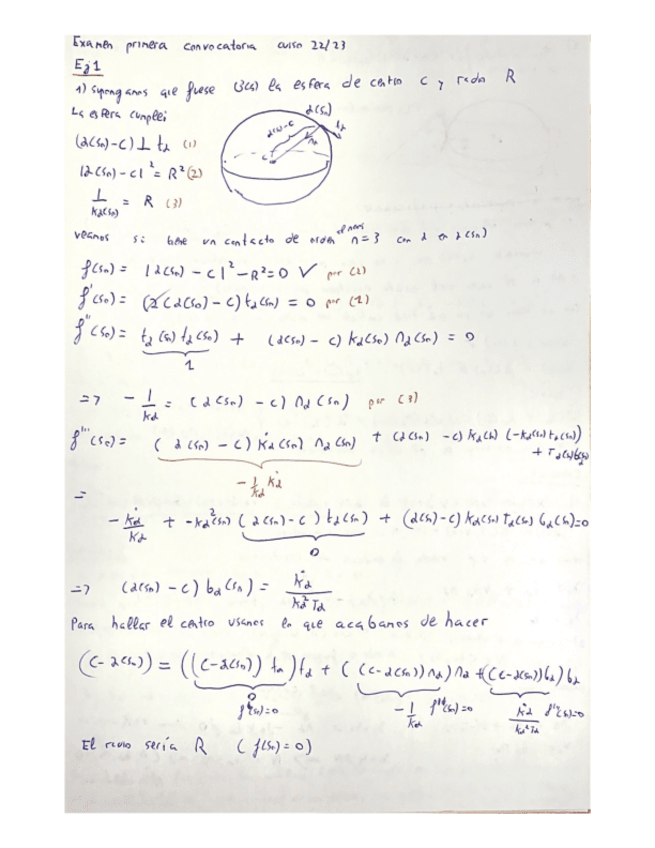 Examen primera convocatoria curso 22/23
Ej 1
1) supongamos que fuese β(s) la esfera de centro C y radio R
La esfera cumple:
(α(s₀)-C) ⊥ t_α (1)
|α(s₀)-C|² = R² (2)
1/k_α(s₀) = R (3)
α(s₀)
α(s₀)-C
t_α
n_α
C
veamos si tiene un contacto de orden al menos n=3 con α en α(s₀)
f(s₀) = |α(s₀) - C|² - R² = 0 ✓ por (2)
f'(s₀) = (2(α(s₀) - C) t_α(s₀) = 0 por (1)
f''(s₀) = t_α(s₀) t_α(s₀) + (α(s₀) - C) k_α(s₀) n_α(s₀) = 0
1
=> - 1/k_α = (α(s₀) - C) n_α(s₀) por (3)
f'''(s₀) = (α(s₀) - C) k̇_α(s₀) n_α(s₀) + (α(s₀) - C) k_α(s₀) (-k_α(s₀) t_α(s₀)
+ τ_α(s₀) b_α(s₀)
- 1/k_α k̇_α
=
- k̇_α/k_α + -k_α²(s₀) (α(s₀) - C) t_α(s₀) + (α(s₀)-C) k_α(s₀) τ_α(s₀) b_α(s₀) = 0
0
=> (α(s₀) - C) b_α(s₀) = k̇_α/k_α² τ_α
Para hallar el centro usamos lo que acabamos de hacer
(C - α(s₀)) = ((C - α(s₀)) t_α) t_α + ((C - α(s₀)) n_α) n_α + ((C - α(s₀)) b_α) b_α
0 - 1/k_α f''(s₀)=0 k̇_α/k_α² τ_α f'''(s₀)=0
f'(s₀)=0
El radio sería R (f(s₀) = 0)